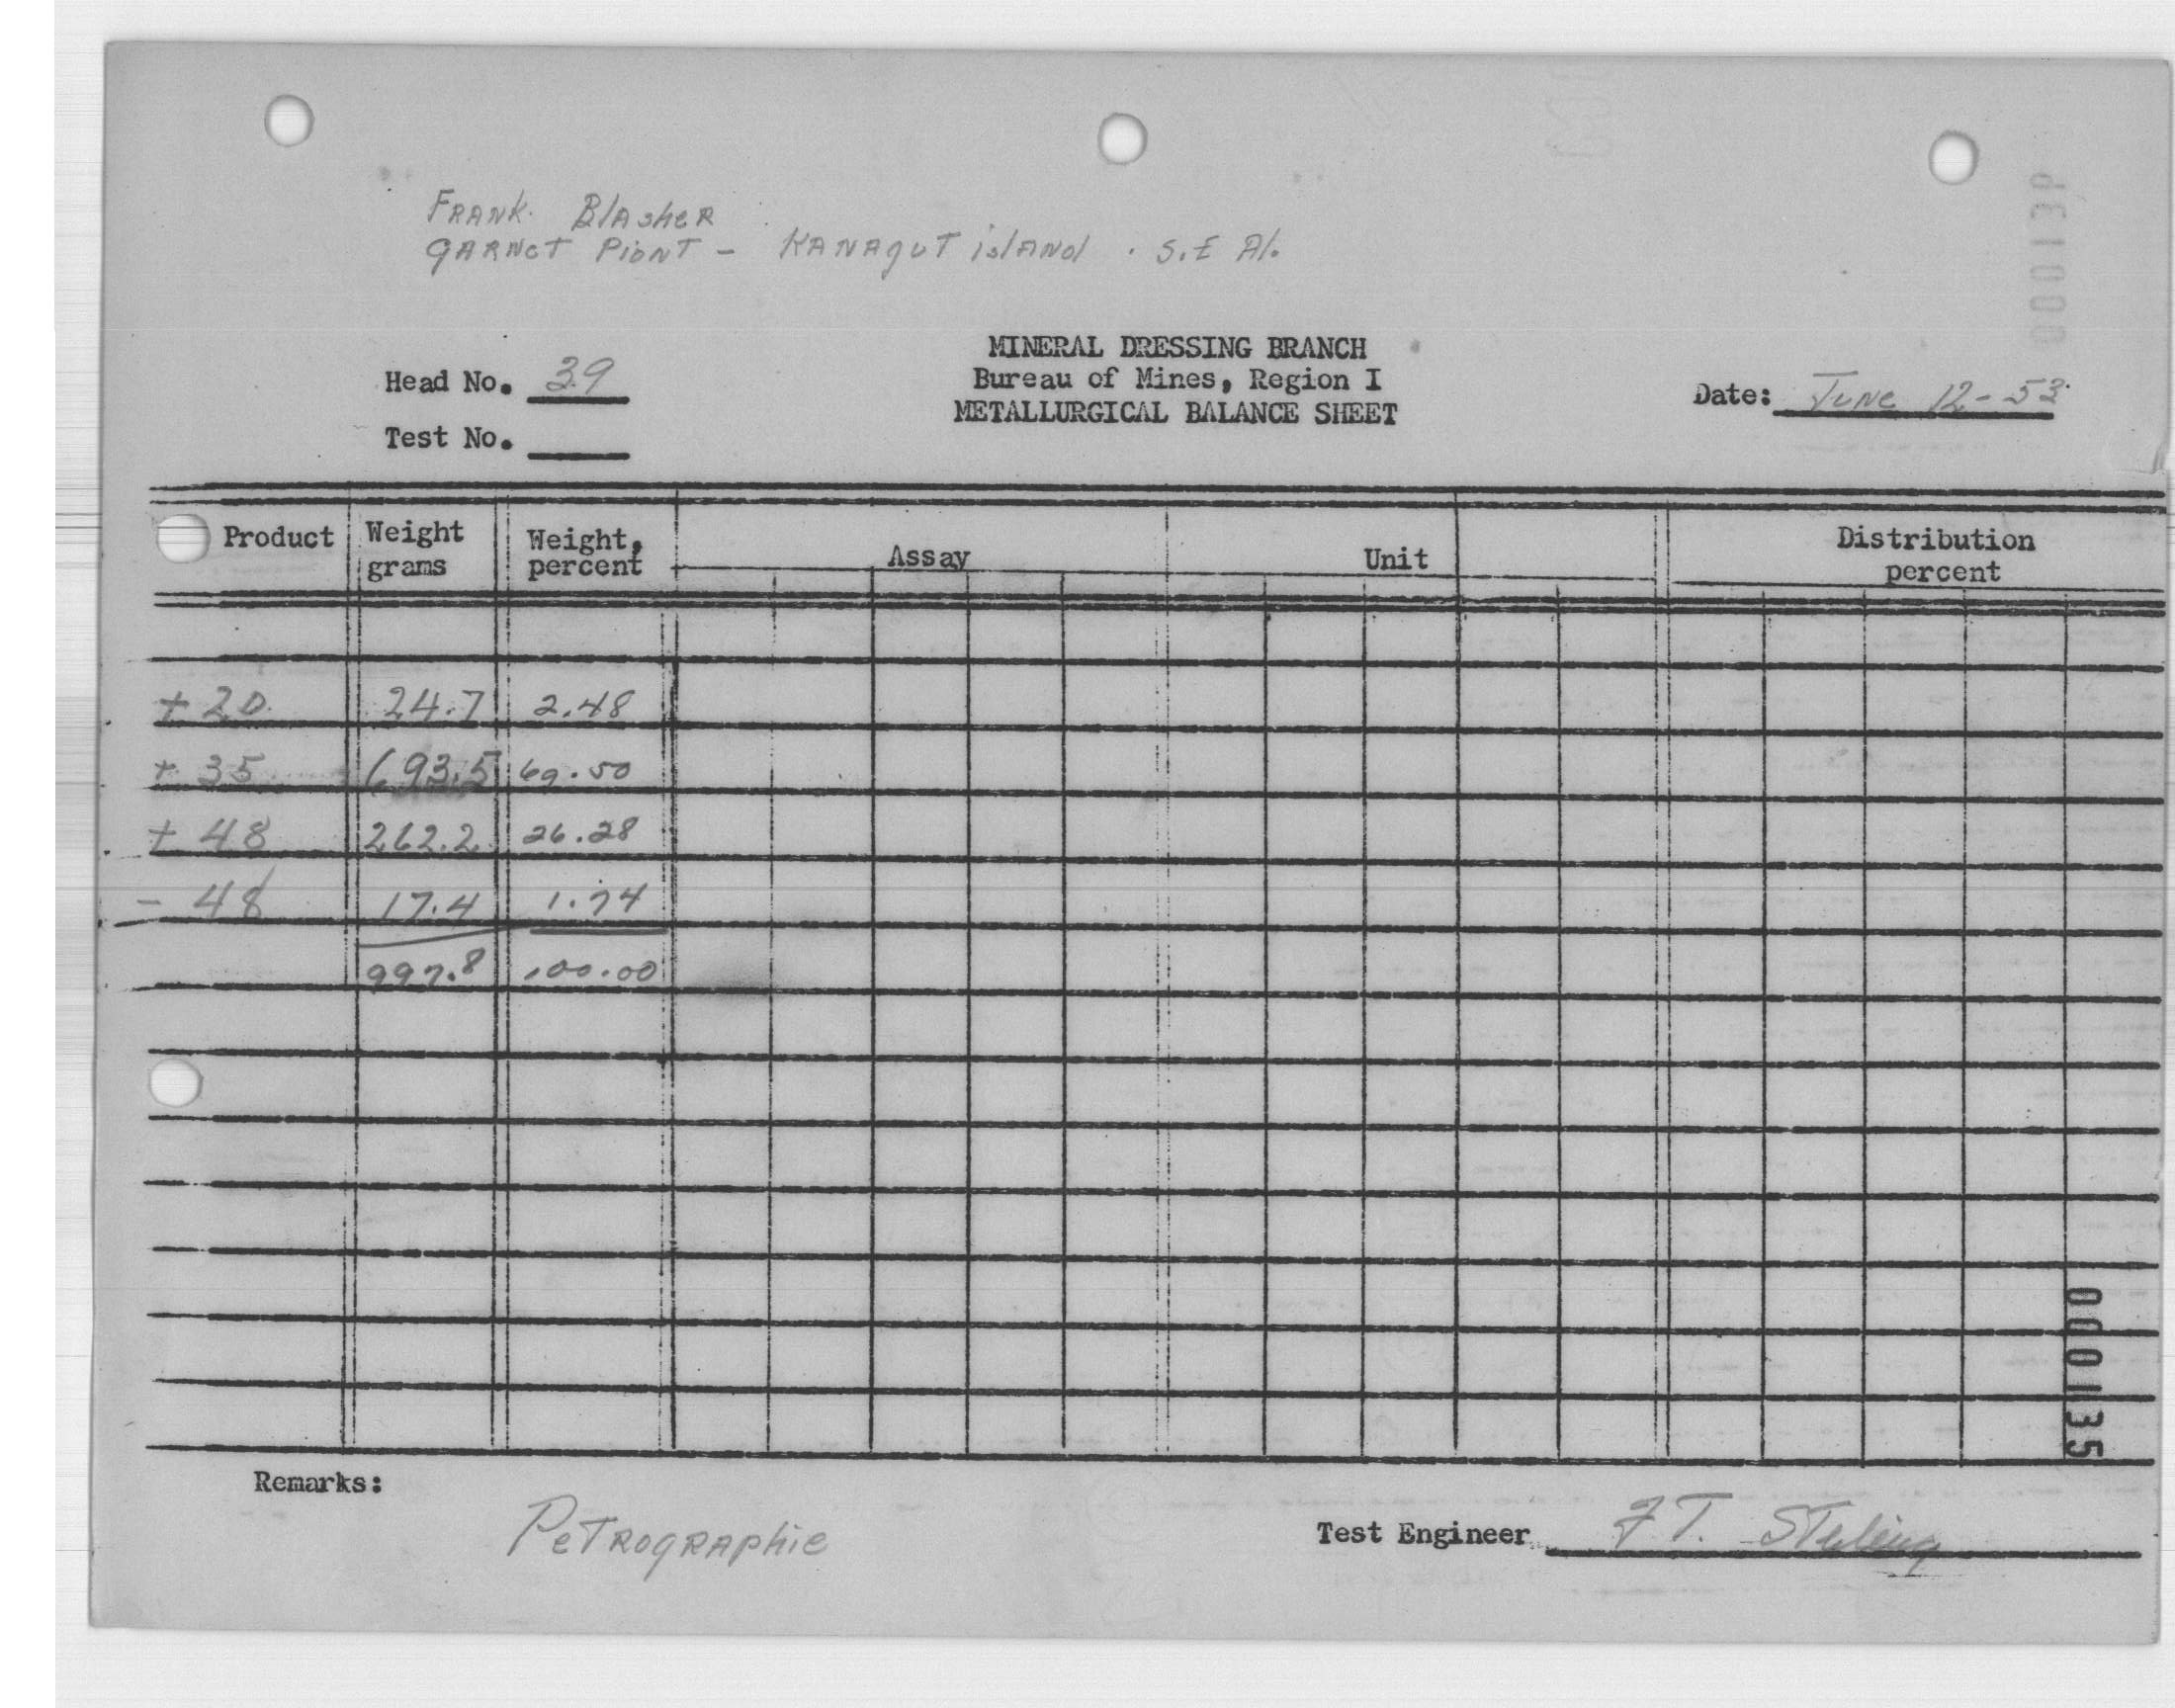 FRANK BlAsheR
GARNET PioNT - KANAguT islANd . S.E Al.
MINERAL DRESSING BRANCH
Head No. 39
Bureau of Mines, Region I
Date: JuNe 12-53
METALLURGICAL BALANCE SHEET
Test No.
Product Weight grams Weight, percent Assay Unit Distribution percent
+ 20 24.7 2.48
+ 35 693.5 69.50
+ 48 262.2 26.28
- 48 17.4 1.74
997.8 100.00
000135
Remarks:
PeTROgRAphie
Test Engineer F T.